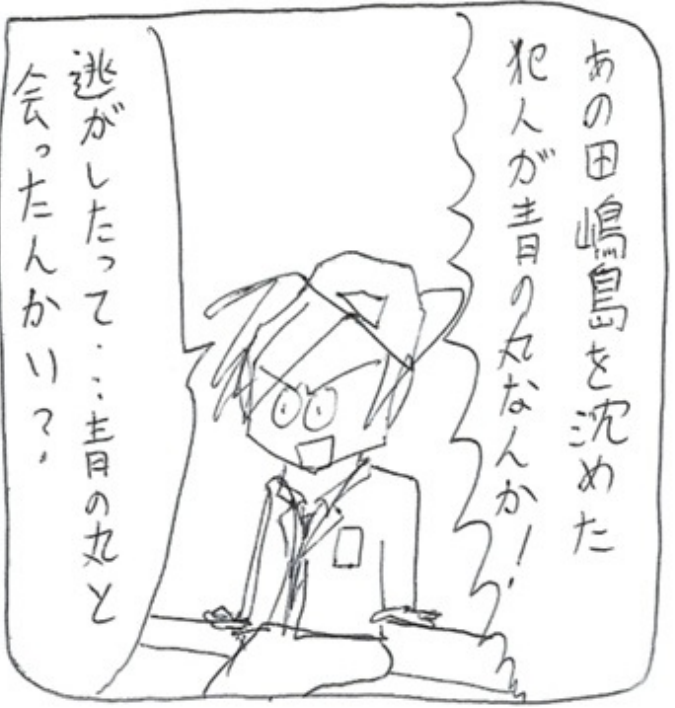 あの田嶋島を沈めた
犯人が青の丸なんか!
逃がしたって・・・青の丸と
会ったんかい?